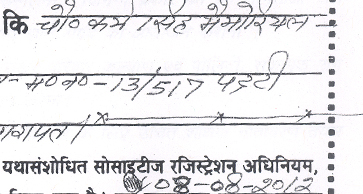 कि चौ० कर्म सिंह मैमोरियल -
म०न० - 13/517 पट्टी
यथासंशोधित सोसाइटीज रजिस्ट्रेशन अधिनियम,
08-08-2012